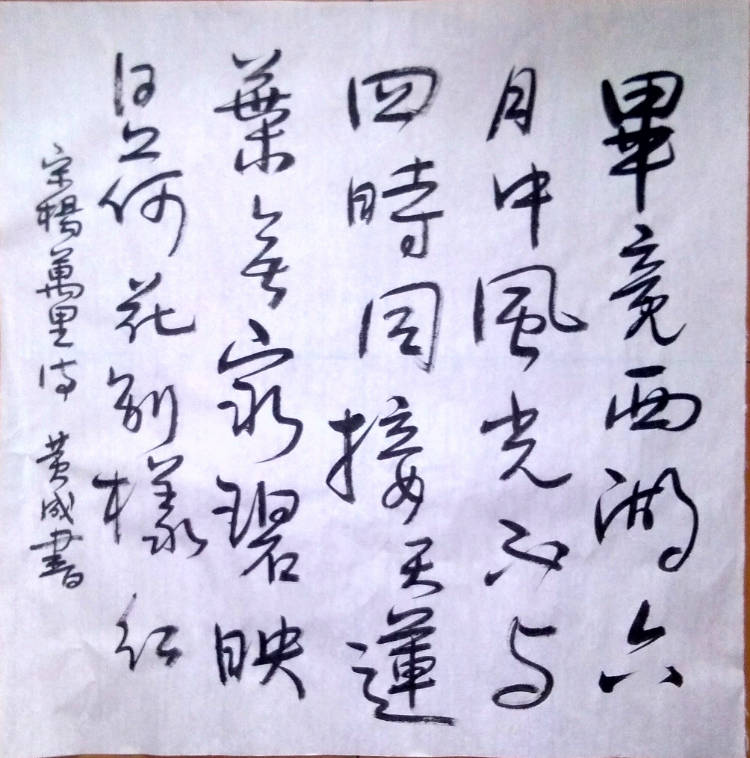 畢竟西湖六
月中風光不与
四時同接天蓮
葉無窮碧映
日荷花别樣红
宋楊萬里诗 黄成書